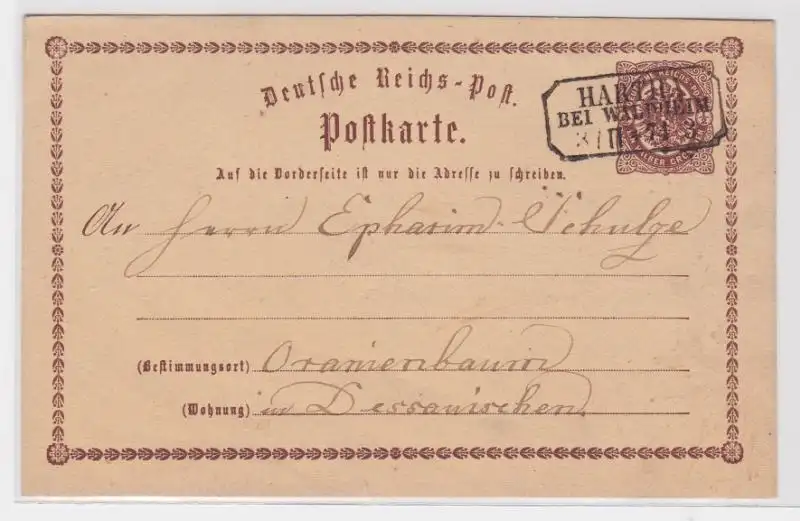 Deutsche Reichs-Post.
Postkarte.
HARTHA
BEI WALDHEIM
3 / II 74
SILBER GROSCHEN
Auf die Vorderseite ist nur die Adresse zu schreiben.
An Herrn Epharim Schulze
(Bestimmungsort) Oranienbaum
(Wohnung) in Dessauischen.